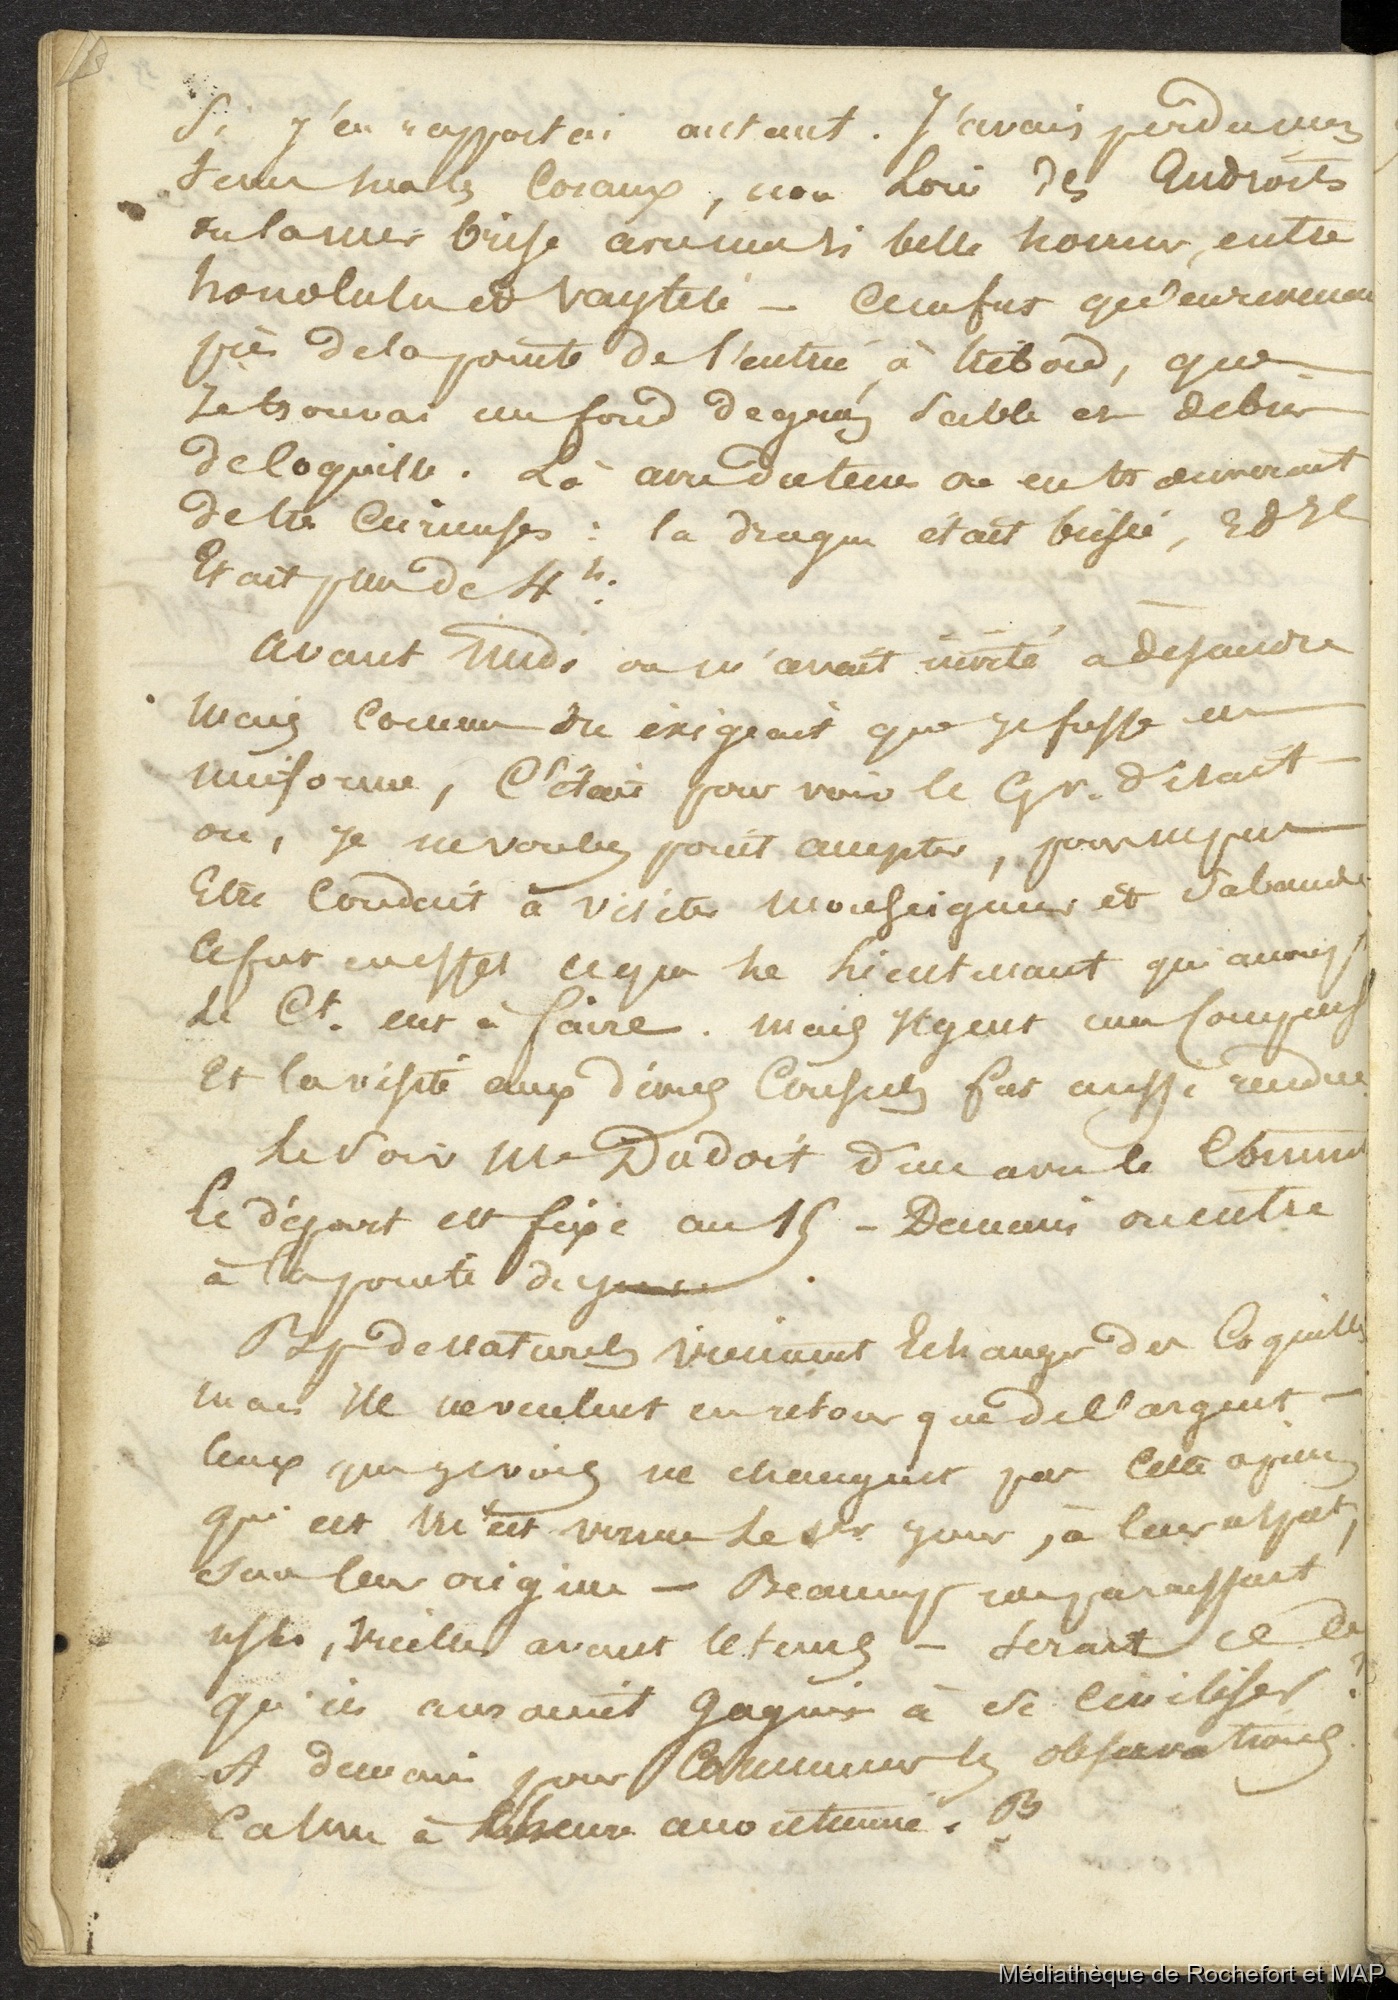 Si j'en rapportai autant. J'avais perdu mon
tems sur les Coraux, non Loin des Endroits
ou la mer brise avec une si belle horreur, entre
honolulu et Vaytité — Ce ne fut qu'en revenant
près de la pointe de l'entrée, à tribord, que
Je trouvai un fond de gros Sable et debris
de Coquille. Là avec du tems on en trouverait
de très Curieuses : la drague était brisée, Et Il
Etait près de 4 h.
avant midi on m'avait invité a dejeuner
mais Comme On éxigeait que je fusse en
uniforme, C'était pour voir le Gr. disait-
on, Je ne voulus point accepter, pour ne pas
Etre Conduit à visiter Monseigneur et Sa bande
Ce fut en effet ce que le Lieutenant qui accomp.
Le Ct. eut à faire. Mais Il y eut une
Et la visite aux divers Consuls fut aussi rendue
Le Soir Mr Dudoit dine avec le Comman
Le départ est fixé au 15 — Demain on entre
à la pointe du jour.
Bp de Naturels viennent Echanger des Coquilles
mais Ils ne veulent en retour que de l'argent —
Ceux que je vois ne changent pas Cette opinion
qui est m'est venue Le 1er jour, à leur aspect,
Sur leur origine — Beaucoup me paraissent
usés, Vieilles avant le tems — Serait ce là
qu'ils auraient gagné à se Civiliser ?
A demain pour Commencer les observations
Calme à L'heure accoutumée. B